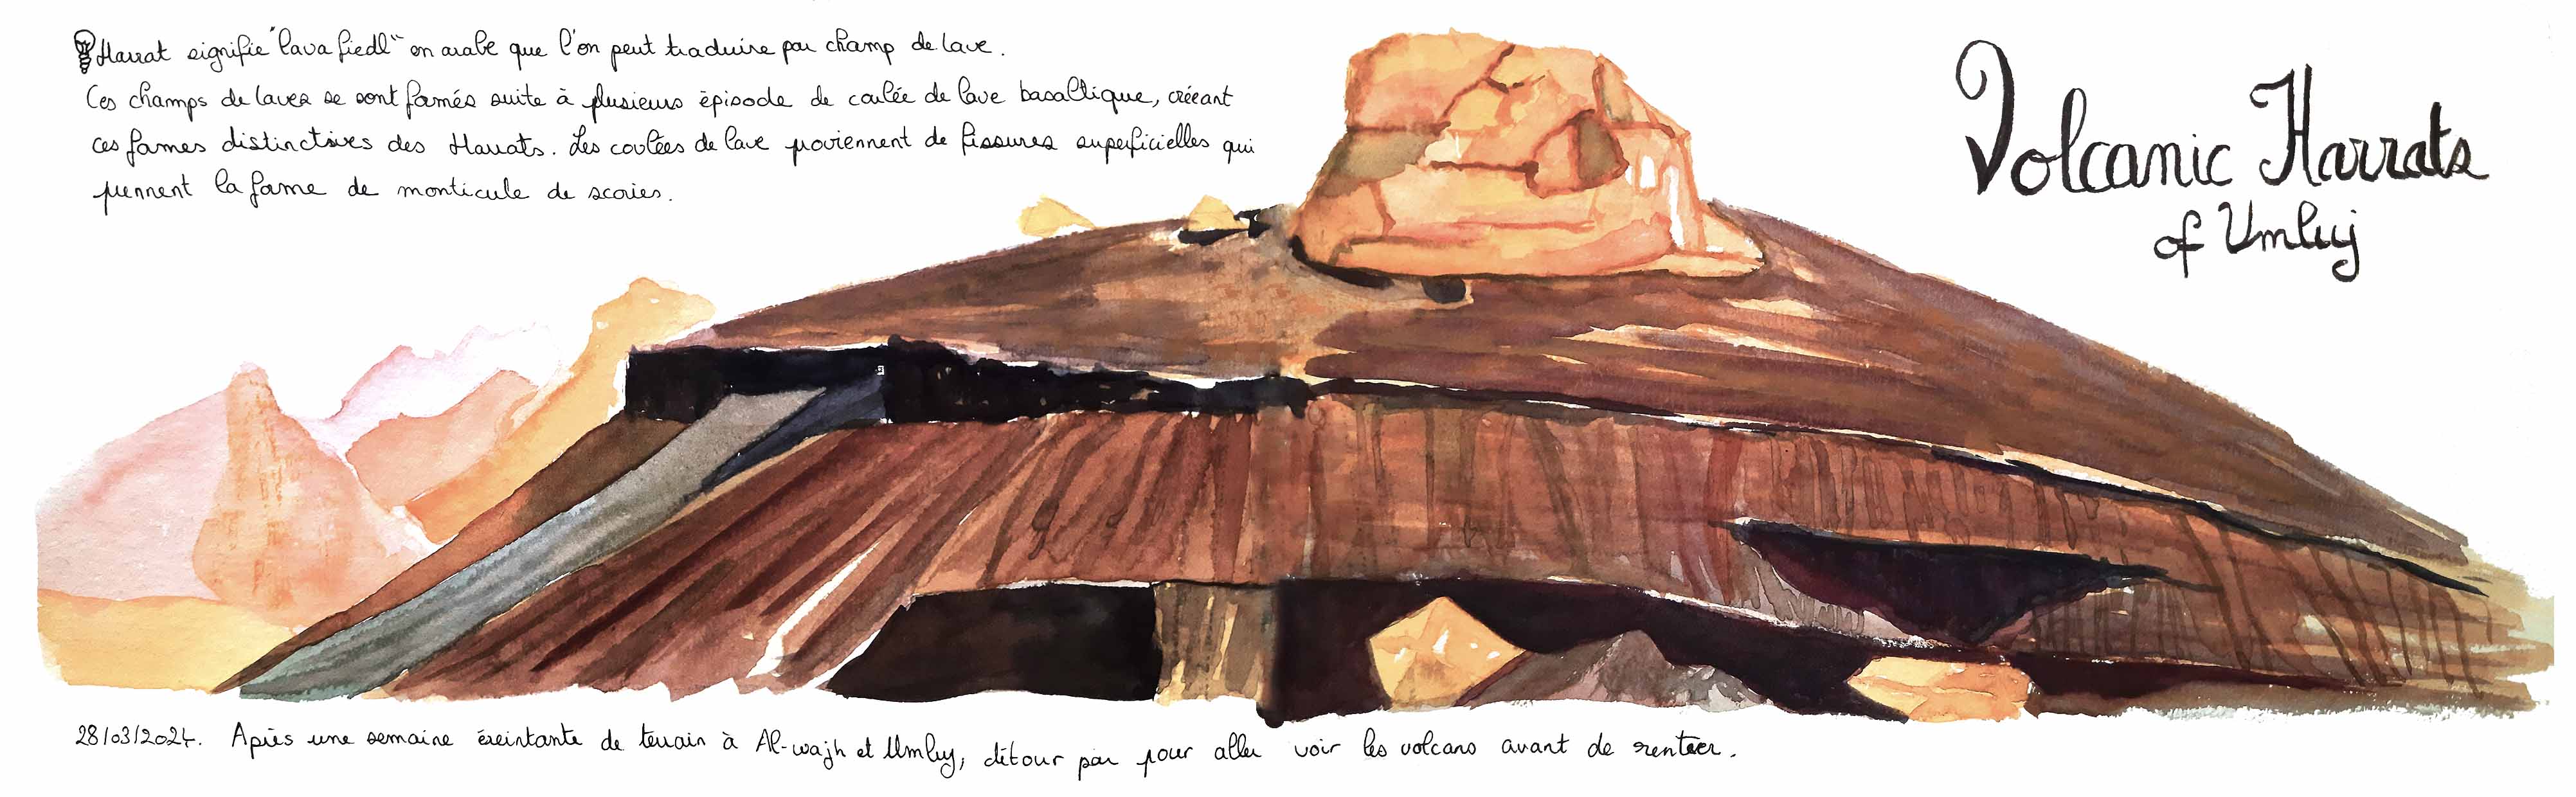 Harrat signifie "lava fiedl" en arabe que l'on peut traduire par champ de lave.
Ces champs de laves se sont formés suite à plusieurs épisode de coulée de lave basaltique, créeant
ces formes distinctives des Harrats. Les coulées de lave proviennent de fissures superficielles qui
prennent la forme de monticule de scories.
Volcanic Harrats
of Umluj
28/03/2024. Après une semaine éreintante de terrain à Al-wajh et Umluj, détour par pour aller voir les volcans avant de rentrer.